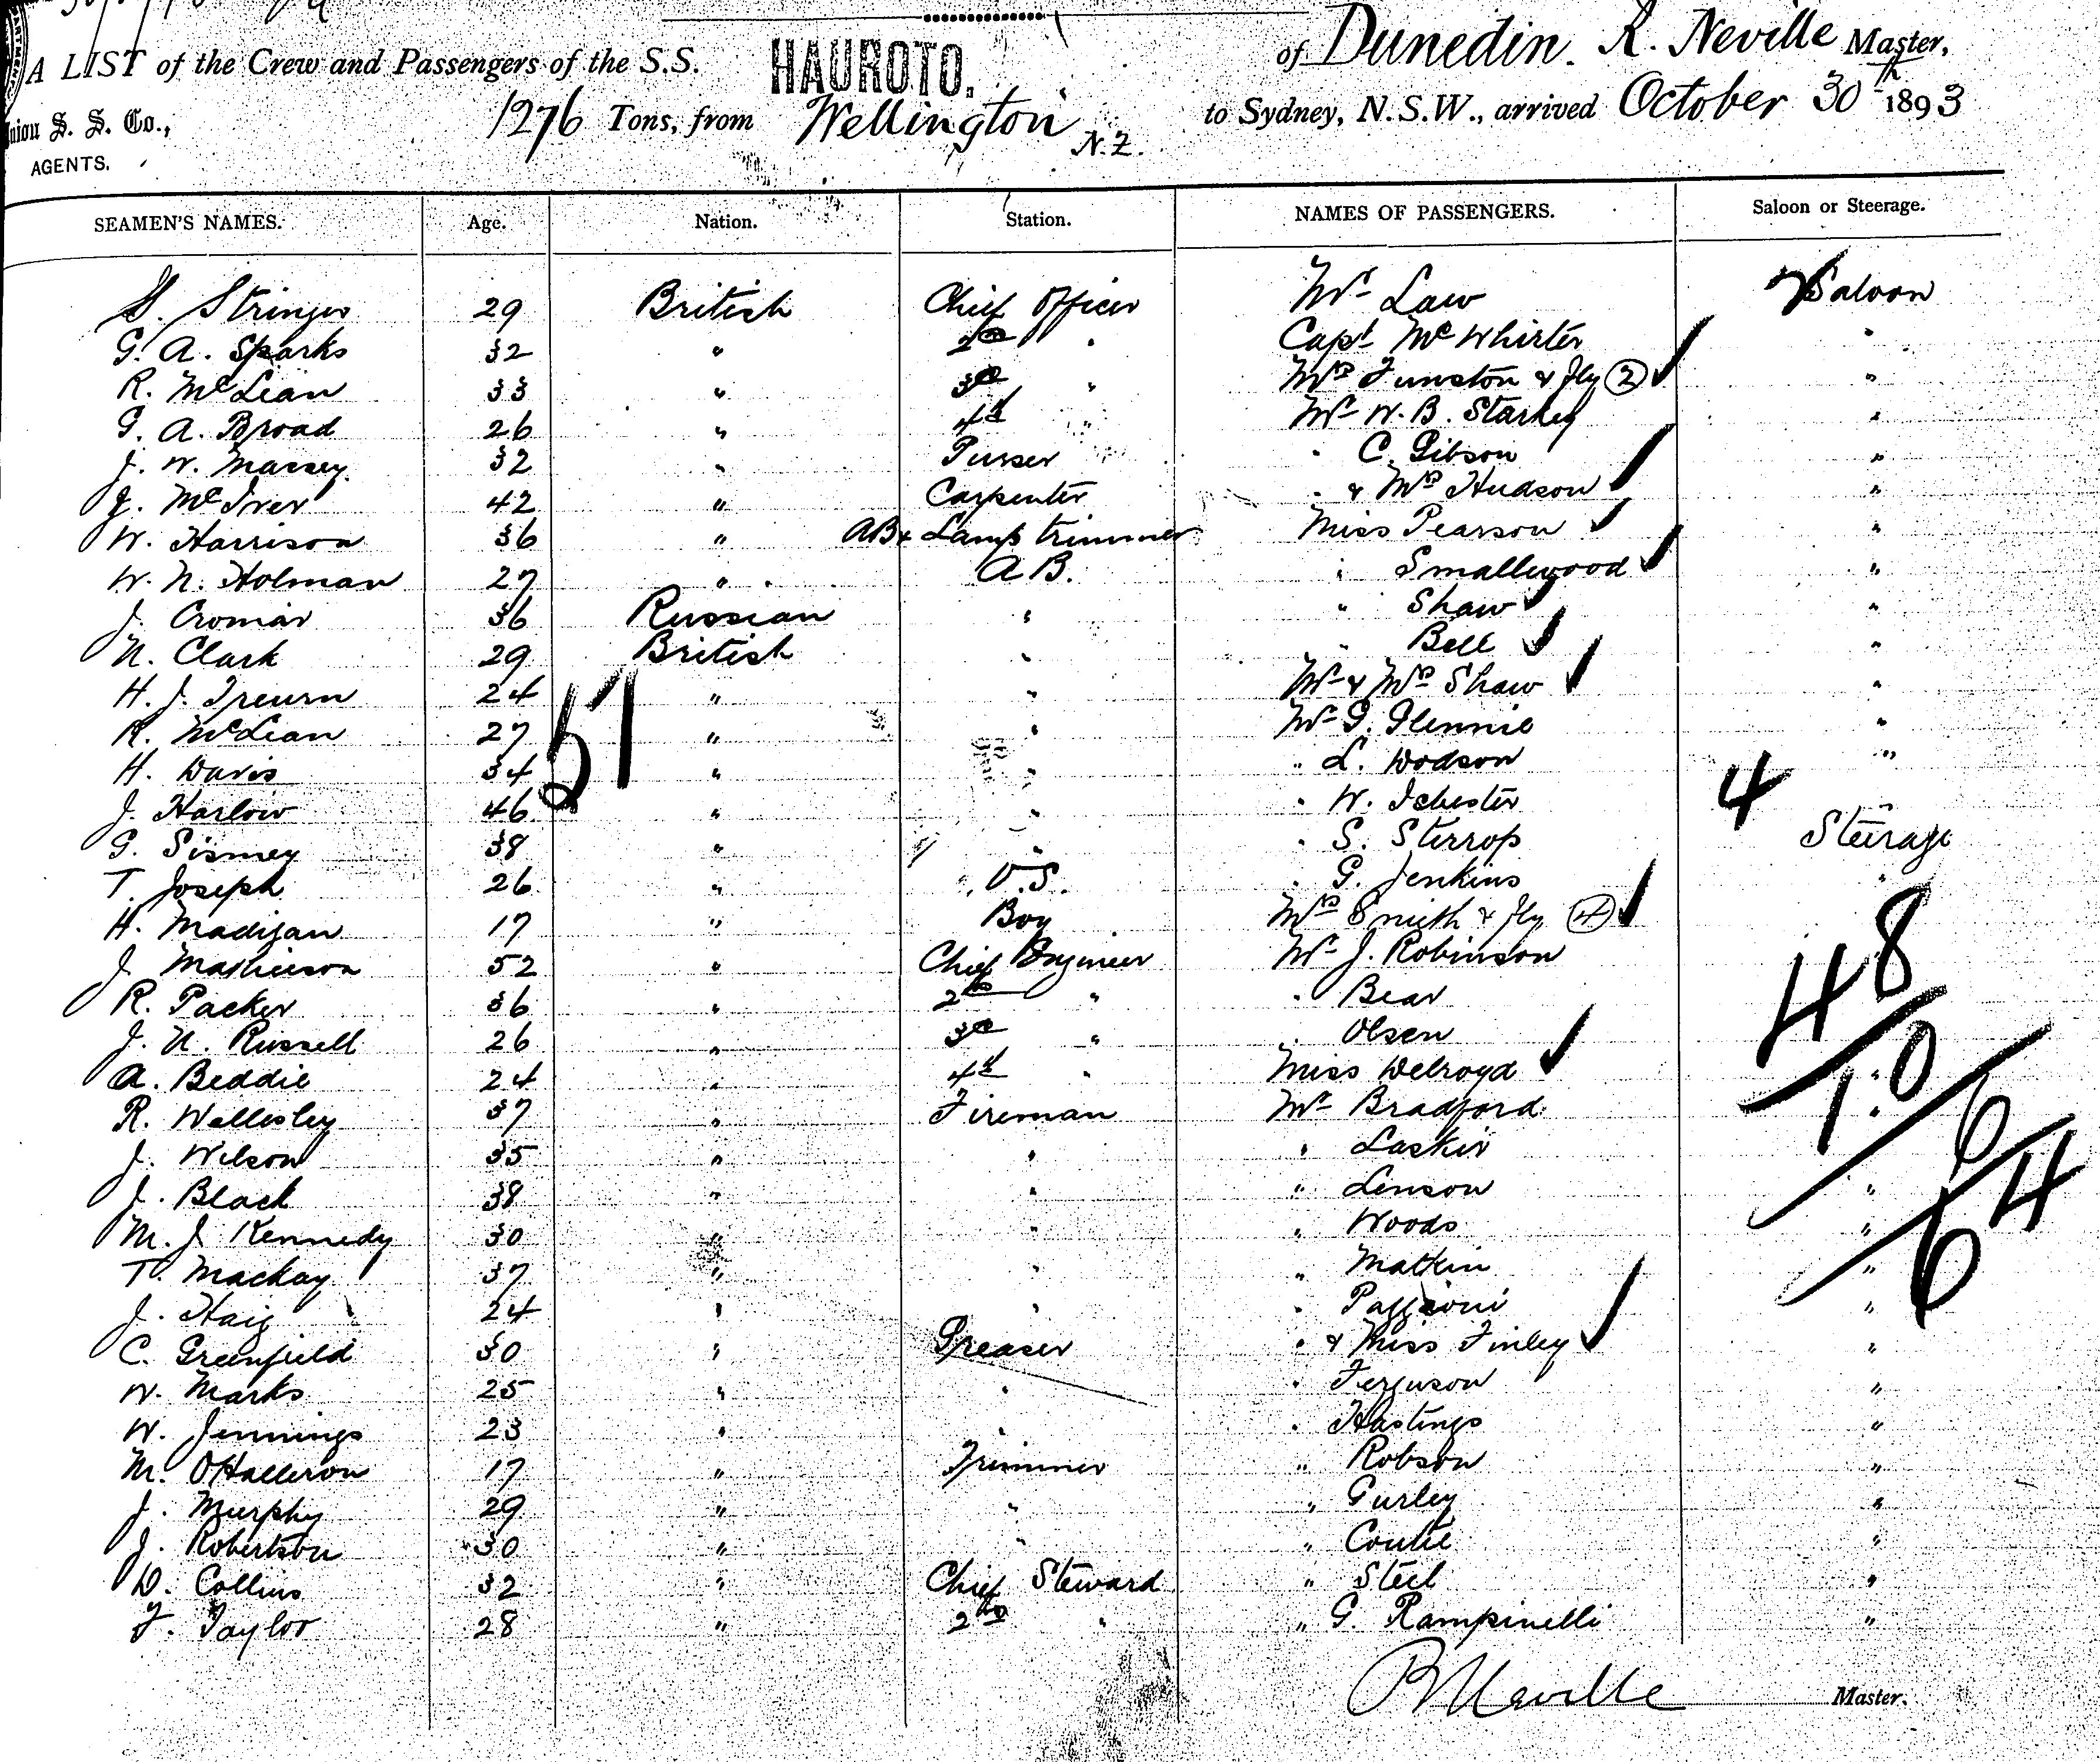 A LIST of the Crew and Passengers of the S.S. HAUROTO. of Dunedin. R. Neville Master,
Union S. S. Co., 1276 Tons, from Wellington N.Z. to Sydney, N.S.W., arrived October 30th 1893
AGENTS.
SEAMEN'S NAMES. Age. Nation. Station. NAMES OF PASSENGERS. Saloon or Steerage.
Stringer 29 British Chief Officer Mr Law Saloon
G. A. Sparks 32 " 2nd " Capt McWhirter "
R. McLean 33 " 3rd " Mrs Funston & fly (2) "
G. A. Broad 26 " 4th " Mr W. B. Starkey "
J. W. Massey 32 " Purser " C. Gibson "
J. McIver 42 " Carpenter " & Mrs Hudson "
W. Harrison 36 " AB & Lamp trimmer Miss Pearson "
W. N. Holman 27 " A B. " Smallwood "
J. Cromar 36 Russian " " Shaw "
N. Clark 29 British " " Bell "
H. J. 24 " " Mr & Mrs Shaw "
51
R. McLean 27 " " Mr G. Glennie "
H. Davis 34 " " " L. Dodson "
4
J. Harlow 46 " " " W. Ichester "
G. Sismey 38 " " " S. Sterrop Steerage
T. Joseph 26 " O.S. " G. Jenkins "
H. Madigan 17 " Boy Mrs Smith & fly (4)
48
J. Mathieson 52 " Chief Engineer Mr J. Robinson
R. Packer 36 " 2nd " " Bear
J. N. Russell 26 " 3rd " " Olsen
10
A. Beddie 24 " 4th " Miss Delroyd "
R. Wellesley 37 " Fireman Mr Bradford "
6
J. Wilson 35 " " " Laskir
J. Black 38 " " " Lenson "
64
M. J. Kennedy 30 " " " Woods "
T. Mackay 37 " " " Matkin "
J. Haig 24 " " " "
C. Greenfield 30 " Greaser " & Miss Finley "
W. Marks 25 " " " Ferguson "
W. Jennings 23 " " " Hastings "
M. O'Halleron 17 " Trimmer " Robson "
J. Murphy 29 " " " Gurley "
J. Robertson 30 " " " Coutie "
D. Collins 32 " Chief Steward " Steel "
F. Taylor 28 " 2nd " " G. Rampinelli "
R Neville Master.